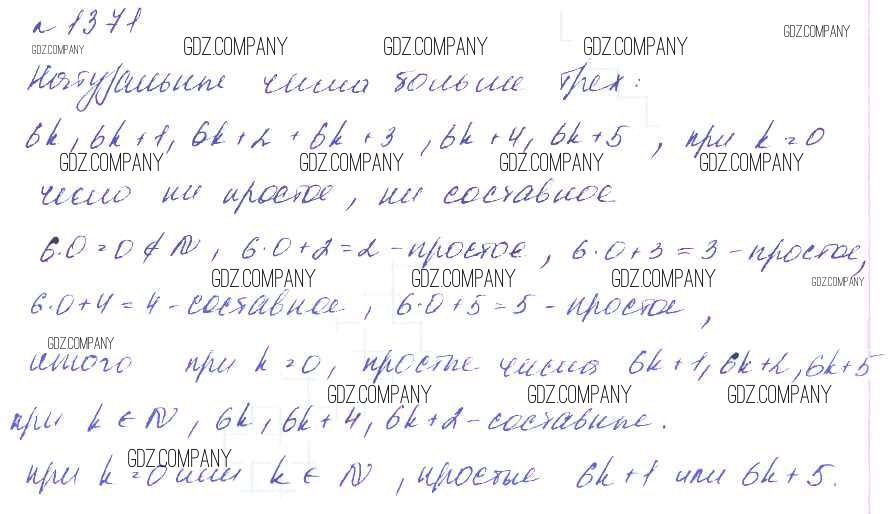 № 1371
GDZ.COMPANY
GDZ.COMPANY GDZ.COMPANY GDZ.COMPANY GDZ.COMPANY
Натуральные числа больше трех:
6k, 6k+1, 6k+2 + 6k+3, 6k+4, 6k+5, при k=0
GDZ.COMPANY GDZ.COMPANY GDZ.COMPANY GDZ.COMPANY
число ни простое, ни составное
6·0=0∉N, 6·0+2=2-простое, 6·0+3=3-простое,
GDZ.COMPANY GDZ.COMPANY GDZ.COMPANY GDZ.COMPANY
6·0+4=4-составное, 6·0+5=5-простое,
GDZ.COMPANY
итого при k=0, простые числа 6k+1, 6k+2, 6k+5
GDZ.COMPANY GDZ.COMPANY GDZ.COMPANY
при k∈N, 6k, 6k+4, 6k+2-составные.
GDZ.COMPANY
при k=0 или k∈N, простые 6k+1 или 6k+5.